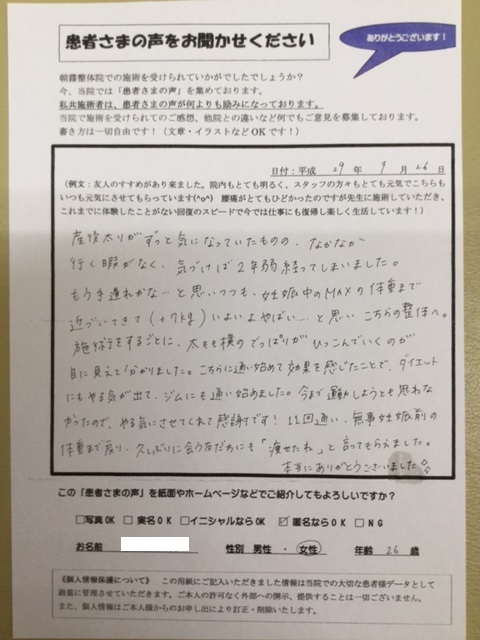 患者さまの声をお聞かせください
ありがとうございます！
朝霧整体院での施術を受けられていかがでしたでしょうか？
今、当院では「患者さまの声」を集めております。
私共施術者は、患者さまの声が何よりも励みになっております。
当院で施術を受けられてのご感想、他院との違いなど何でもご意見を募集しております。
書き方は一切自由です！（文章・イラストなどOKです！）
日付：平成 29 年 9 月 26 日
（例文：友人のすすめがあり来ました。院内もとても明るく、スタッフの方々もとても元気でこちらも
いつも元気にさせてもらっています(^o^) 腰痛がとてもひどかったのですが先生に施術していただき、
これまでに体験したことがない回復のスピードで今では仕事にも復帰し楽しく生活しています！）
産後太りがずっと気になっていたものの、なかなか
行く暇がなく、気づけば2年弱経ってしまいました。
もう手遅れかな…と思いつつも、妊娠中のMAXの体重まで
近づいてきて（+7kg）いよいよやばい…と思いこちらの整体へ。
施術をするごとに、太もも横のでっぱりがひっこんでいくのが
目に見えて分かりました。こちらに通い始めて効果を感じたことで、ダイエット
にもやる気が出て、ジムにも通い始めました。今まで運動しようとも思わな
かったので、やる気にさせてくれて感謝です！11回通い、無事妊娠前の
体重まで戻り、久しぶりに会う友だちにも「痩せたね」と言ってもらえました。
本当にありがとうございました。
この「患者さまの声」を紙面やホームページなどでご紹介してもよろしいですか？
□写真OK □実名OK □イニシャルならOK ☑匿名ならOK □NG
お名前 性別 男性 ・ 女性 年齢 26 歳
《個人情報保護について》 この用紙にご記入いただきました情報は当院での大切な患者様データとして
厳重に管理させていただきます。ご本人の許可なく外部への開示、提供することは一切ございません。
また、個人情報はご本人様からのお申し出により訂正・削除いたします。